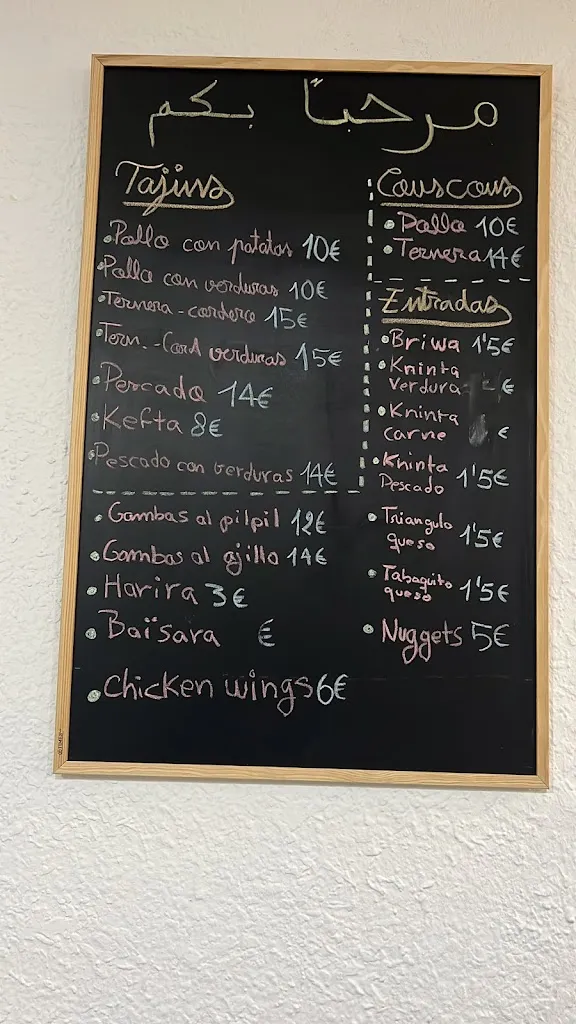 مرحباً بكم
Tajins
Pollo con patatas 10€
Pollo con verduras 10€
Ternera-cordero 15€
Tern.-Cord verduras 15€
Pescado 14€
Kefta 8€
Pescado con verduras 14€
Gambas al pilpil 12€
Gambas al ajillo 14€
Harira 3€
Baïsara €
Chicken wings 6€
Couscous
Pollo 10€
Ternera 14€
Entradas
Briwa 1'5€
Kninta
verdura €
Kninta
carne €
Kninta
Pescado 1'5€
Triangulo
queso 1'5€
Tabaquito
queso 1'5€
Nuggets 5€